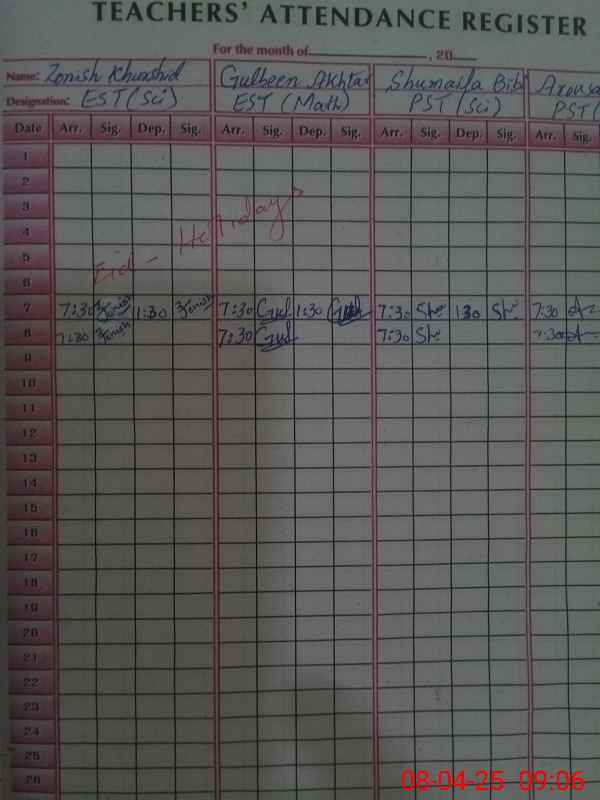 TEACHERS' ATTENDANCE REGISTER
For the month of , 20
Name: Zonish Khurshid Gulbeen Akhtar Shumaila Bibi
Designation: EST (Sci) EST (Math) PST (Sci) PST (
Date Arr. Sig. Dep. Sig. Arr. Sig. Dep. Sig. Arr. Sig. Dep. Sig. Arr. Sig.
1
2
3
4
5
Eid - Hollidays
6
7 7:30 Zonish 1:30 Zonish 7:30 Gul 1:30 Gul 7:30 Sh 130 Sh 7:30
8 7:30 Zonish 7:30 Gul 7:30 Sh 7:30
9
10
11
12
13
14
15
16
17
18
19
20
21
22
23
24
25
26
08-04-25 09:06